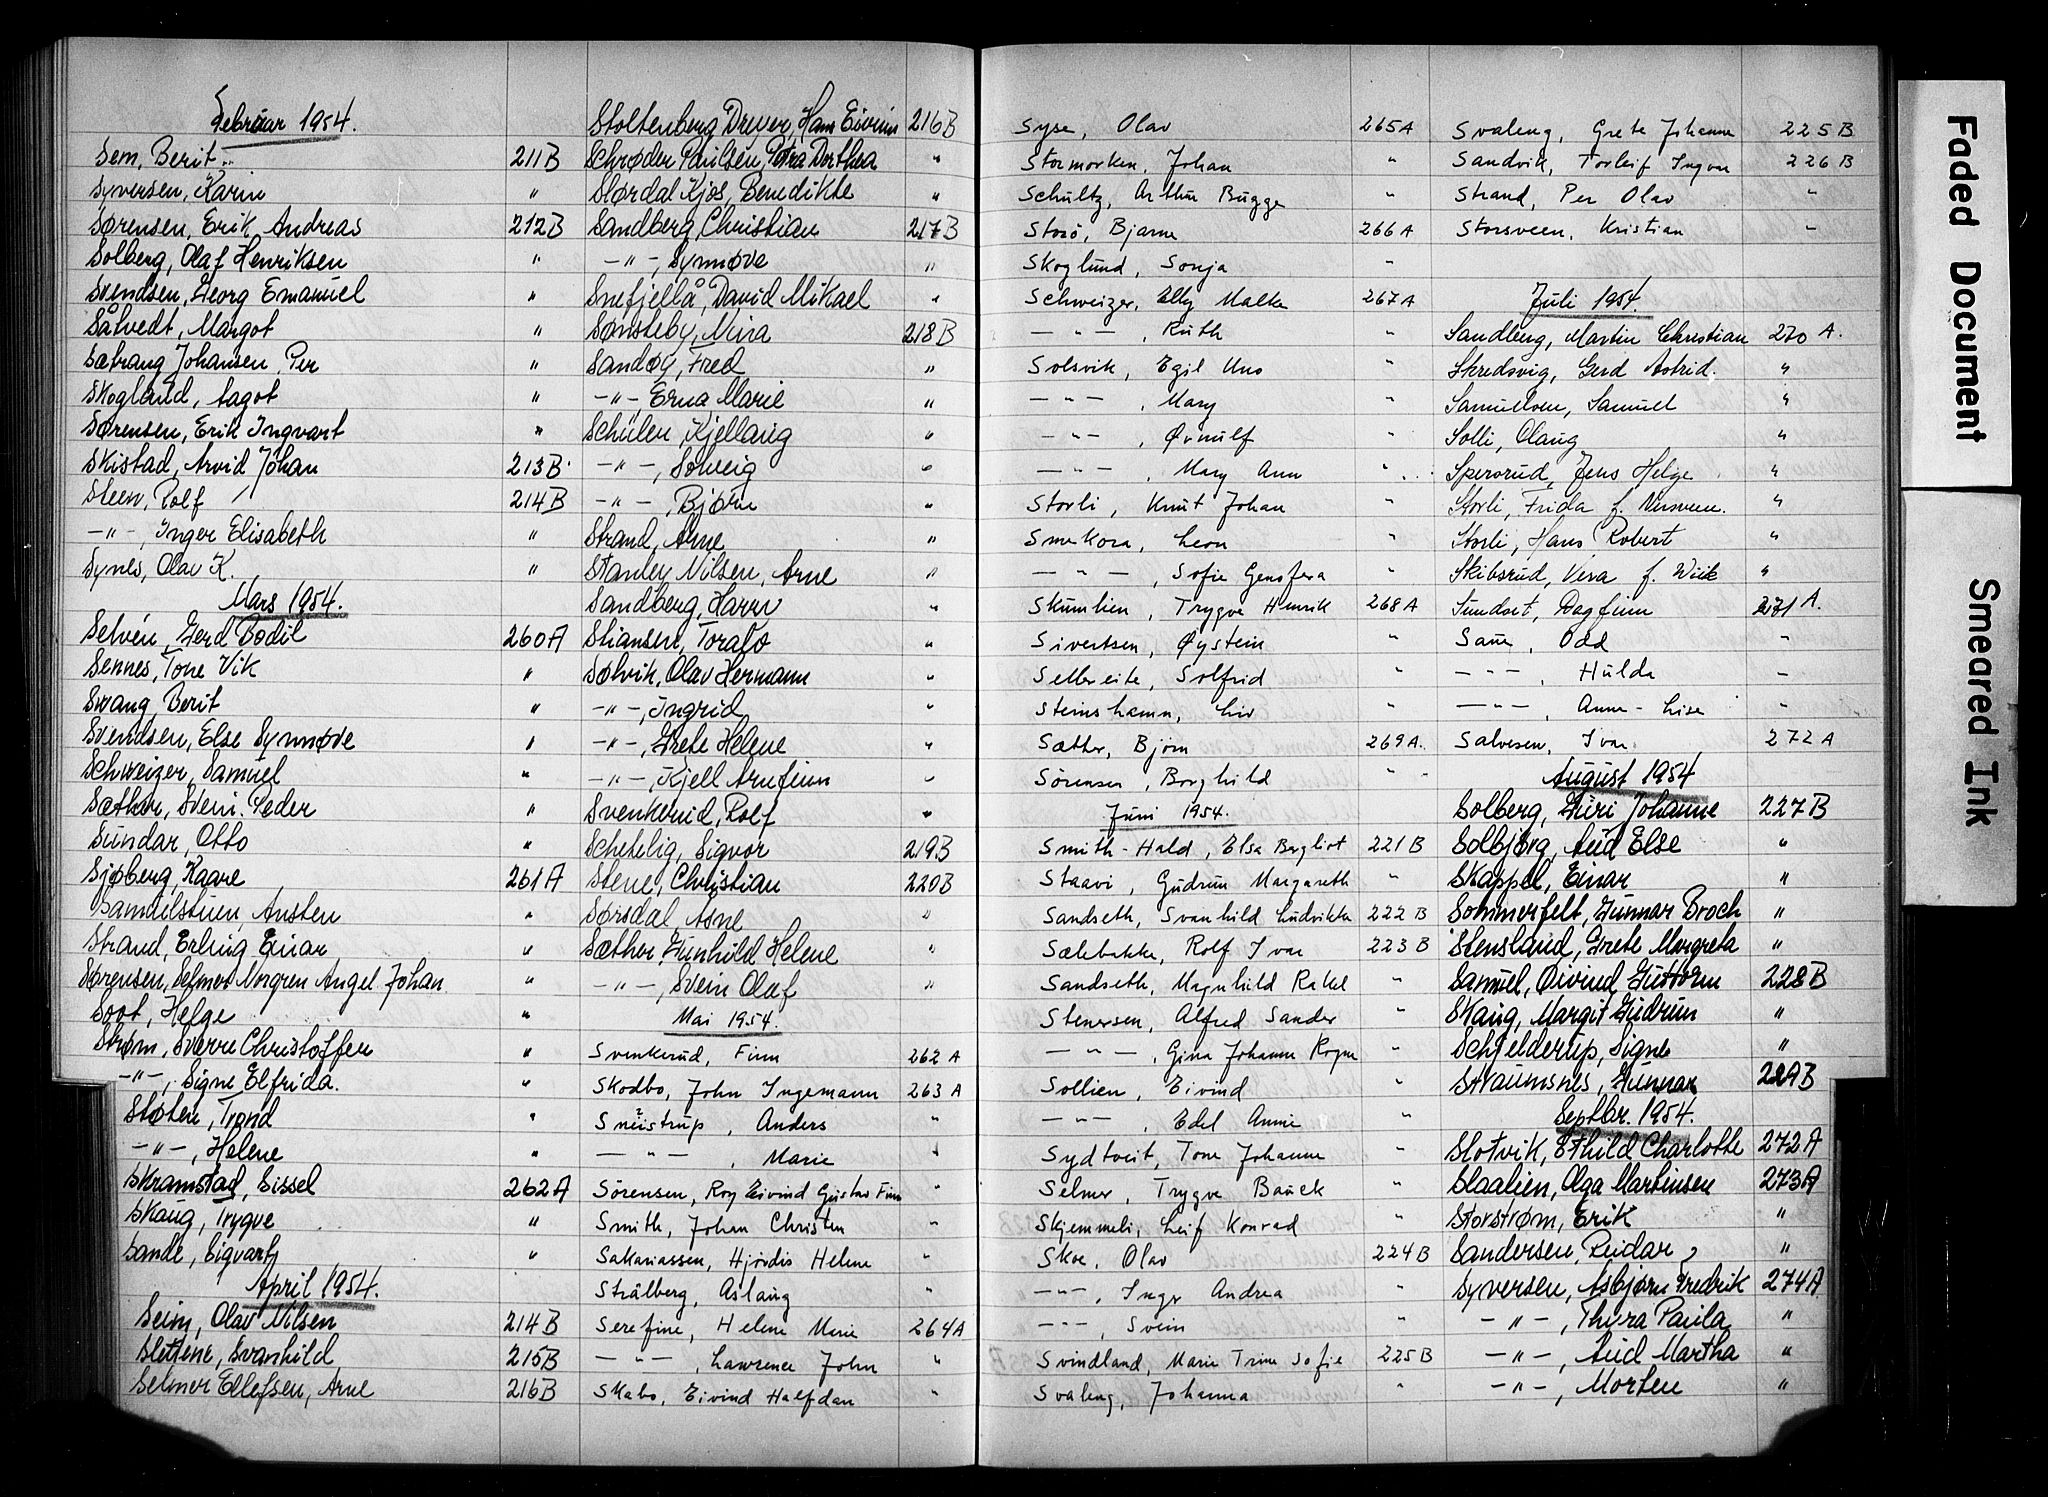 Februar 1954.
Sem, Berit 211B
Syversen, Karin "
Sørensen, Erik Andreas 212B
Solberg, Olaf Henriksen "
Svendsen, Georg Emanuel "
Såtvedt, Margot "
Sætrang Johansen, Per "
Skogland, Aagot "
Sørensen, Erik Ingvart "
Skistad, Arvid Johan 213B
Steen, Rolf 214B
-"-, Inger Elisabeth "
Synes, Olav K. "
Mars 1954.
Selvén, Gerd Bodil 260A
Sennes, Tone Vik "
Svang, Berit "
Svendsen, Else Synnøve "
Schweizer, Samuel "
Sæther, Svein Peder "
Sundar, Otto "
Sjøberg, Kaare 261A
Samuelstuen, Austen "
Strand, Erling Einar "
Sørensen, Selmer Norgren Angel Johan "
Soot, Helge "
Strøm, Sverre Christoffer "
-"-, Signe Elfrida. "
Støtere, Trond "
-"-, Helene "
Skramstad, Sissel 262A
Skaug, Trygve "
Sande, Sigvart "
April 1954.
Seim, Olav Nilsen 214B
Slettene, Svanhild 215B
Selmer Ellefsen, Arne 216B
Stoltenberg Drever, Hans Eivind 216B
Schrøder Paulsen, Petra Dorthea "
Størdal Kjos, Benedikte "
Sandberg, Christian 217B
-"-, Synnøve "
Snefjellå, David Mikael "
Sønsteby, Mira 218B
Sandøy, Fred "
-"-, Erna Marie "
Schülen, Kjellaug "
-"-, Solveig "
-"-, Bjørn "
Strand, Arne "
Stanley Nilsen, Arne "
Sandberg, Harry "
Stiansen, Toralv "
Sølvik, Olav Hermann "
-"-, Ingrid "
-"-, Grete Helene "
-"-, Kjell Arnfinn "
Svenkerud, Rolf "
Schetelig, Sigvor 219B
Stene, Christian 220B
Sørsdal, Asne "
Sæther, Gunhild Helene "
-"-, Svein Olaf "
Mai 1954
Svenkerud, Finn 262 A
Skodbo, John Ingemann 263 A
Sneistrup, Anders "
-"-, Marie "
Sörensen, Roy Eivind Gustav Finn "
Smith, Johan Christen "
Sakariassen, Hjördis Helene "
Strålberg, Aslaug "
Serefine, Helene Marie 264A
-"-, Lawrence John "
Skabo, Eivind Halfdan "
Syse, Olav 265A
Stormorken, Johan "
Schultz, Arthur Bugge "
Storö, Bjarne 266A
Skoglund, Sonja "
Schweizer, Elly Malka 267A
-"-, Ruth "
Solsvik, Egil Uno "
-"-, Mary "
-"-, Ørnulf "
-"-, Mary Ann "
Storli, Knut Johan "
Smekora, Leon "
-"-, Sofie Genofera "
Skumlien, Trygve Henrik 268A
Sivertsen, Øystein "
Sellereite, Solfrid "
Steinshamn, Liv "
Sæther, Björn 269A.
Sörensen, Borghild "
Juni 1954.
Smith-Hald, Elsa Bergliot 221B
Staavi, Gudrun Margareth "
Sandseth, Svanhild Ludvikke 222B
Sælebakke, Rolf Ivar 223B
Sandseth, Magnhild Rakel "
Stenersen, Alfred Sander "
-"-, Gina Johanne Rogne "
Sollien, Eivind "
-"-, Edel Annie "
Sydtveit, Tone Johanne "
Selmer, Trygve Bauck "
Skjemmeli, Leif Konrad "
Skoe, Olav 224B
-"-, Inger Andrea "
-"-, Svein "
Svindland, Marie Trine Sofie 225B
Svaleng, Johanna "
Svaleng, Grete Johanne 225B
Sandvik, Torleif Ingvar 226B
Strand, Per Olav "
Storsveen, Kristian "
Juli 1954.
Sandberg, Martin Christian 270 A.
Skredsvig, Gerd Astrid. "
Samuelsen, Samuel "
Solli, Olaug "
Spersrud, Jens Helge "
Storli, Frida f. Nersveen. "
Storli, Hans Robert "
Skibsrud, Vera f. Wiik "
Sundset, Dagfinn 271A.
Saue, Odd "
-"-, Hulda "
-"-, Anne-Lise "
Salvesen, Ivar 272A
August 1954
Solberg, Guri Johanne 227B
Solbjørg, Aud Else "
Skappel, Einar "
Sommerfelt, Gunnar Broch "
Stensland, Grete Margreta "
Samuel, Øivind Guttorm 228B
Skaug, Margit Gudrun "
Schjelderup, Signe "
Straumsnes, Gunnar 229B
Septbr. 1954.
Slotvik, Ethild Charlotte 272A
Slaalien, Olga Martinsen 273A
Storstrøm, Erik "
Sandersen, Reidar "
Syversen, Asbjørn Fredrik 274A
-"-, Thyra Paula "
-"-, Aud Martha "
-"-, Morten "
Faded Document
Smeared Ink